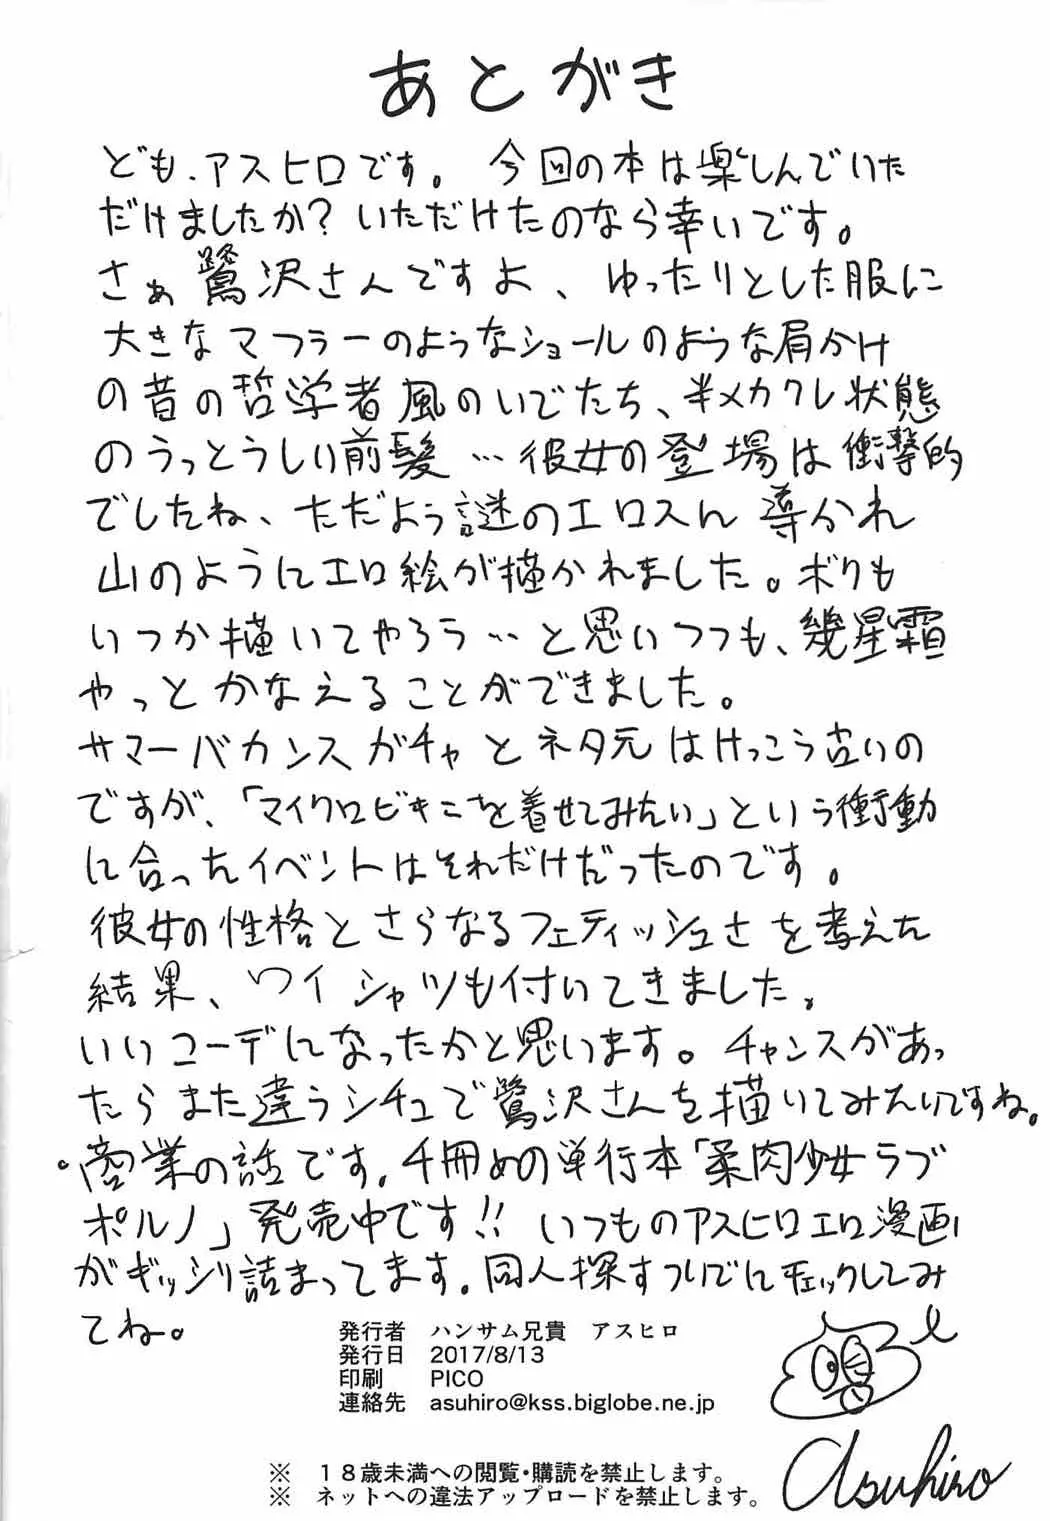 あとがき
ども、アスヒロです。今回の本は楽しんでいた
だけましたか？いただけたのなら幸いです。
さぁ鷺沢さんですよ、ゆったりとした服に
大きなマフラーのようなショールのような肩かけ
の昔の哲学者風のいでたち、半メカクレ状態
のうっとうしい前髪…彼女の登場は衝撃的
でしたね、ただよう謎のエロスん導かれ
山のようにエロ絵が描かれました。ボクも
いつか描いてやろう…と思いつつも、幾星霜
やっとかなえることができました。
サマーバカンスガチャとネタ元はけっこう古いの
ですが、「マイクロビキニを着せてみたい」という衝動
に合ったイベントはそれだけだったのです。
彼女の性格とさらなるフェティッシュさを考えた
結果、ワイシャツも付いてきました。
いいコーデになったかと思います。チャンスがあっ
たらまた違うシチュで鷺沢さんを描いてみたいですね。
・商業の話です。4冊めの単行本「柔肉少女ラブ
ポルノ」発売中です!!いつものアスヒロエロ漫画
がギッシリ詰まってます。同人探すついでにチェックしてみ
てね。
発行者 ハンサム兄貴 アスヒロ
発行日 2017/8/13
印刷 PICO
連絡先 asuhiro@kss.biglobe.ne.jp
Asuhiro
※ 18歳未満への閲覧・購読を禁止します。
※ ネットへの違法アップロードを禁止します。